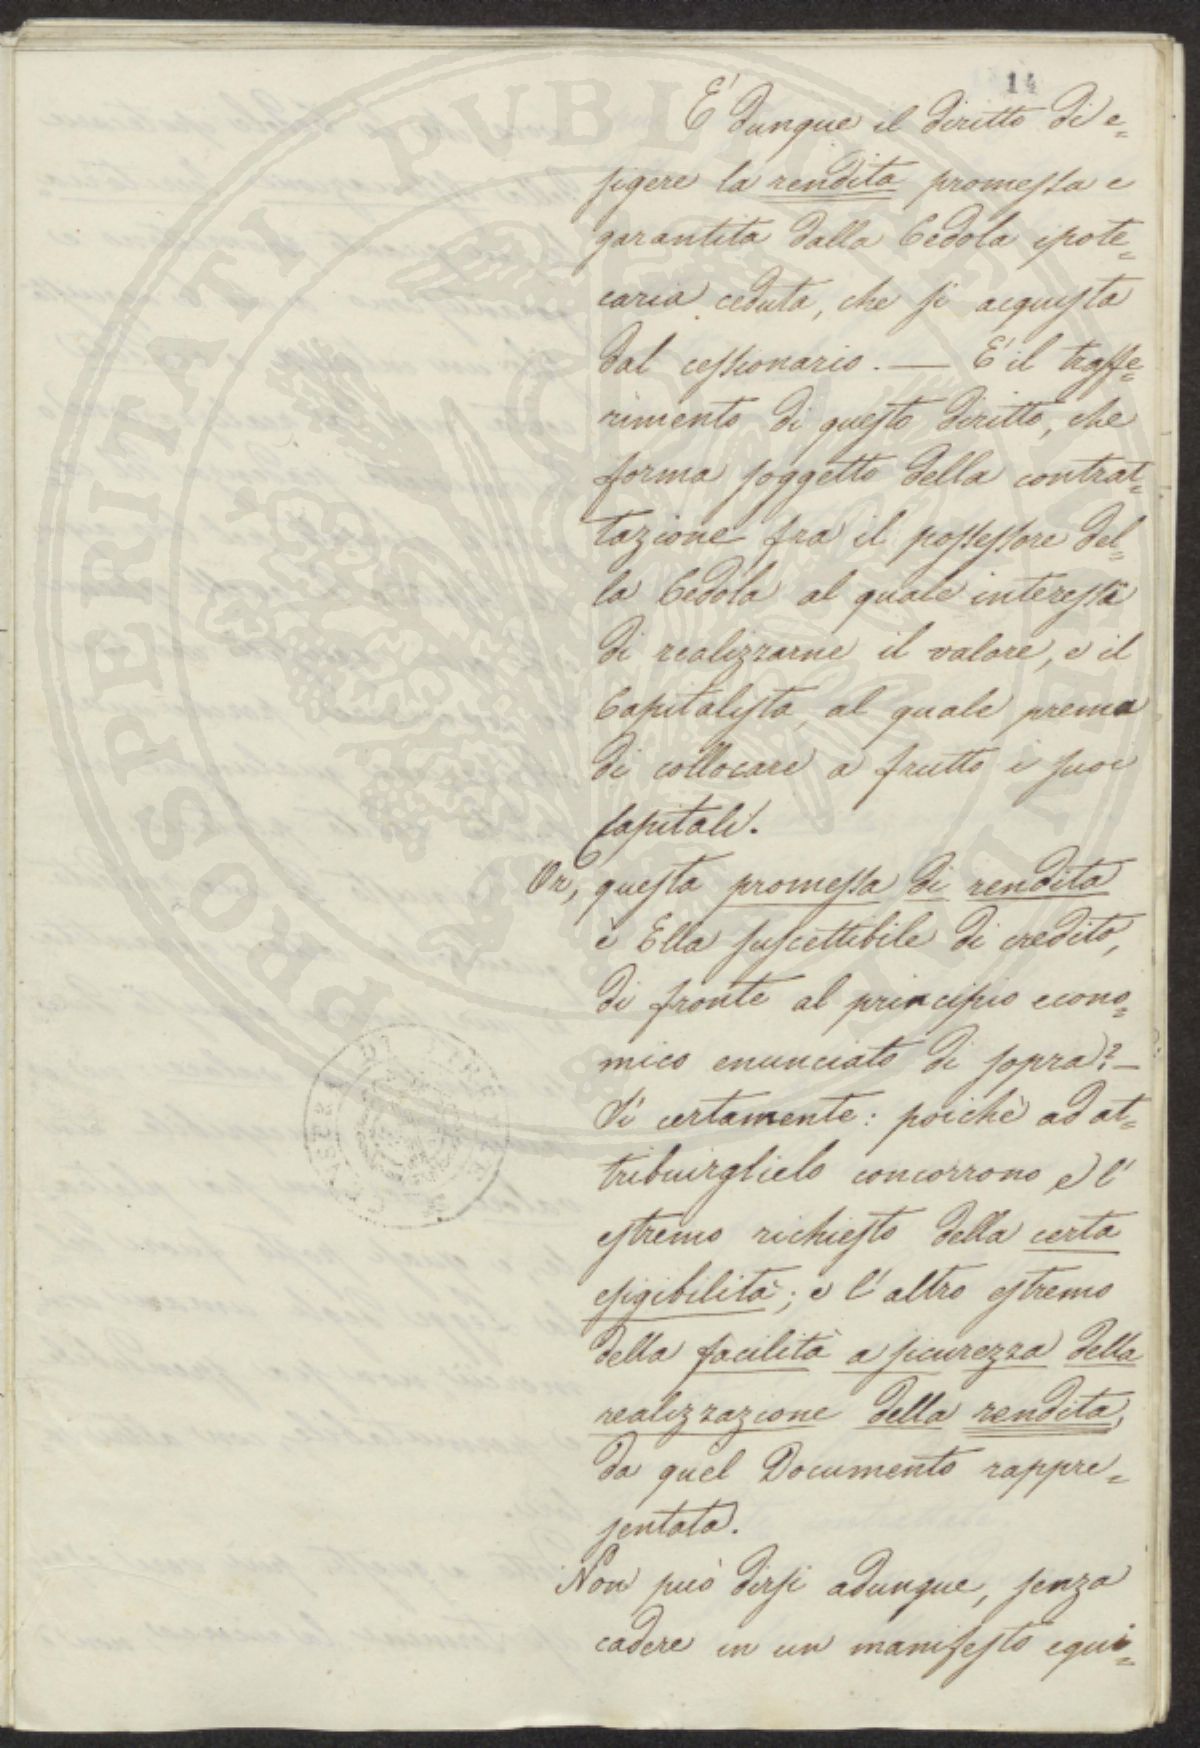 14
E' dunque il diritto di e=
sigere la rendita promessa e
garantita dalla Cedola ipote=
caria ceduta, che si acquista
dal cessionario. — E' il trasfe=
rimento di questo diritto, che
forma soggetto della contrat=
tazione fra il possessore del=
la Cedola al quale interessa
di realizzarne il valore, e il
Capitalista, al quale prema
di collocare a frutto i suoi
Capitali.
Or, questa promessa di rendita
è Ella suscettibile di credito,
di fronte al principio econo=
mico enunciato di sopra? —
Sì certamente: poichè ad at=
tribuirglielo concorrono e l'
estremo richiesto della certa
esigibilità; e l'altro estremo
della facilità a sicurezza della
realizzazione della rendita,
da quel Documento rappre=
sentata.
Non può dirsi adunque, senza
cadere in un manifesto equi=
PROSPERITATI PUBLICAE